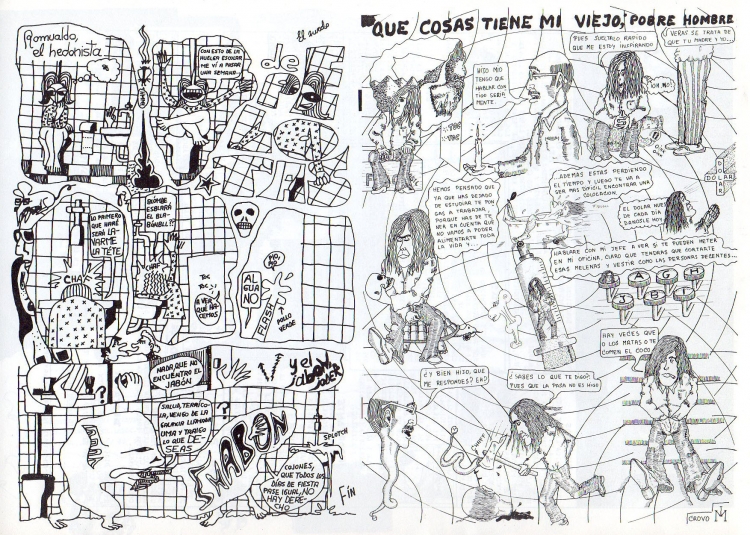 Romualdo,
el hedonista
CON ESTO DE LA
HUELGA ESCOLAR
ME VÍ A PASAR
UNA SEMANA...
El sueño
de
LO PRIMERO
QUE HARÉ
SERÁ LA-
VARME
LA TÊTE
CHAF
¿DOMBE
ESBLARÁ
EL BLA-
BÓNBLL?
CHAF
TOC
TOC
A VER
QUE HA-
CEMOS
AL
GUA
NO
FLASH
POLLO
VERDE
NADA, QUE NO
ENCUENTRO EL
JABÓN
y el
jabón,
joder
?
?
SALUD, TERRÍCO-
LA, VENGO DE LA
GALAXIA LLAMADA
UMA Y TRAIGO
LO QUE DE-
SEAS
JHABÓN
SPLOTCH
COJONES,
QUE TODOS LOS
DÍAS DE FIESTA
PASE IGUAL, NO
HAY DERE-
CHO
FIN
QUE COSAS TIENE MI VIEJO, POBRE HOMBRE
HIJO MIO
TENGO QUE
HABLAR CON-
TIGO SERIA-
MENTE
PUES SUELTALO RAPIDO
QUE ME ESTOY INSPIRANDO
VERAS SE TRATA DE
QUE TU MADRE Y YO...
¡OH NO!
TOC
TOC
HEMOS PENSADO QUE
YA QUE HAS DEJADO
DE ESTUDIAR TE PON
GAS A TRABAJAR,
PORQUE HAS DE TE
NER EN CUENTA QUE
NO VAMOS A PODER
ALIMENTARTE TODA
LA VIDA Y...
ADEMAS ESTAS PERDIENDO
EL TIEMPO Y LUEGO TE VA A
SER MAS DIFICIL ENCONTRAR UNA
COLOCACION
DOLAR
EL DOLAR NUESTRO
DE CADA DIA
DANOSLE HOY
HABLARE CON MI JEFE A VER SI TE PUEDEN METER
EN MI OFICINA, CLARO QUE TENDRAS QUE CORTARTE
ESAS MELENAS Y VESTIR COMO LAS PERSONAS DECENTES...
A G H
J S I
¿Y BIEN HIJO, QUE
ME RESPONDES? EH?
¿SABES LO QUE TE DIGO?
PUES QUE LA PASA NO ES HIGO
HAY VECES QUE
O LOS MATAS O TE
COMEN EL COCO
CROVO